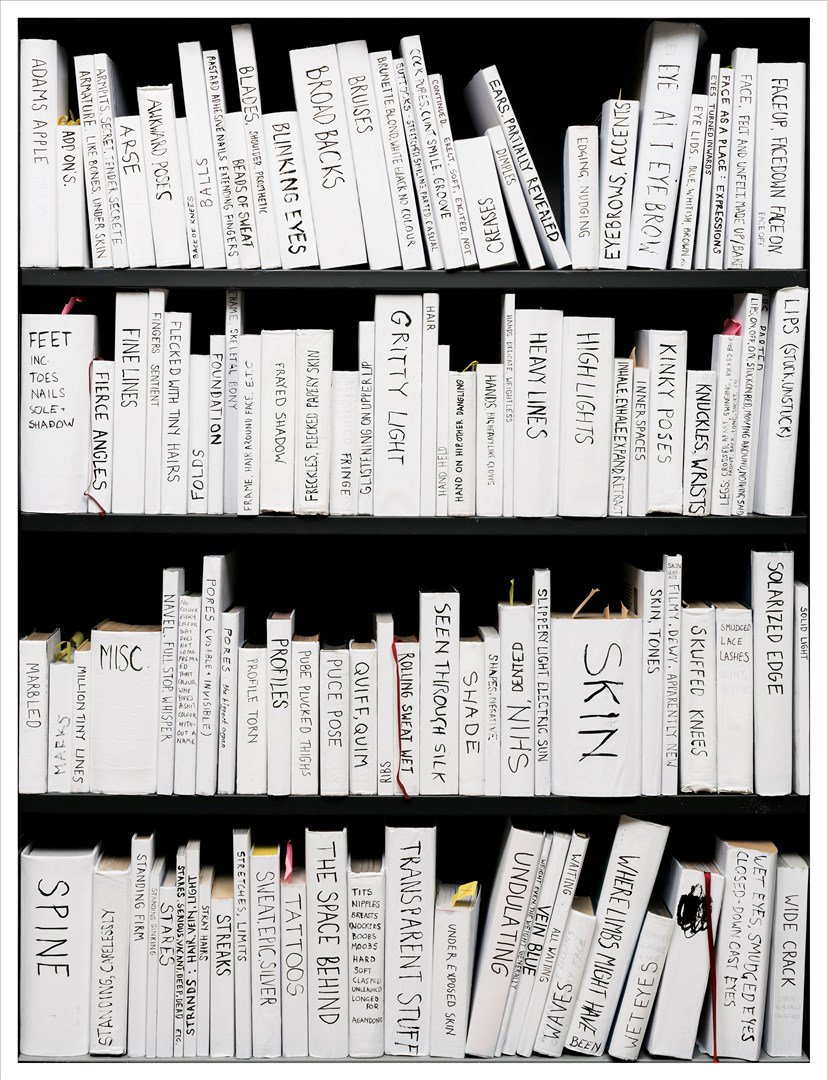 ADAMS APPLE
ADD ON'S.
ARMATURE, LIKE BONES, UNDER SKIN
ARMPITS, SECRET, TENDER, SECRETE
ARSE
AWKWARD POSES
BACK OF KNEES
BALLS
BASTARD ADHESIVE NAILS EXTENDING FINGERS
BEADS OF SWEAT
BLADES, SHOULDER, PROSTHETIC
BLINKING EYES
BROAD BACKS
BRUISES
BRUNETTE BLOND WHITE BLACK NO COLOUR
CONTINUED. ERECT, SOFT, EXCITED, NOT
CREASES
DIMPLES
EARS, PARTIALLY REVEALED
EDGING, NUDGING
EYEBROWS, ACCENTS
EYE BROW
EYE LIDS, BLUE, WHITISH, BROWN
EYES TURNED INWARDS
FACE AS A PLACE: EXPRESSIONS
FACE, FELT AND UNFELT, MADE UP/BARE
FACE UP, FACE DOWN FACE ON
FACE OFF
FEET
INC.
TOES
NAILS
SOLE +
SHADOW
FIERCE ANGLES
FINE LINES
FINGERS SENTIENT
FLECKED WITH TINY HAIRS
FOLDS
FOUNDATION
FRAME SKELETAL BONY
FRAME, HAIR AROUND FACE, ETC
FRAYED SHADOW
FRECKLES, FLECKED PATCHY SKIN
FRINGE
GLISTENING ON UPPER LIP
GRITTY LIGHT
HAIR
HAND HELD
HAND ON HIP, OTHER DANGLING
HANDS, HEAVY LIKE CLOUDS
HANDS DELICATE, WEIGHTLESS
HEAVY LINES
HIGHLIGHTS
INHALE, EXHALE, EXPAND, RETRACT
INNER SPACES
KINKY POSES
KNUCKLES, WRISTS
LIPS (STUCK, UNSTUCK)
MARBLED
MARKS
MILLION TINY LINES
MISC.
NAVEL, FULL STOP, WHISPER
PORES (VISIBLE + INVISIBLE)
PORES
PROFILE TORN
PROFILES
PUBE PLUCKED THIGHS
PUCE POSE
QUIFF, QUIM
RIBS
ROLLING SWEAT WET
SEEN THROUGH SILK
SHADE
SHAPES, NEGATIVE
SHIN, DENTED
SLIPPERY LIGHT ELECTRIC SUN
SKIN
SKIN, TONES
FILMY, DEWY, APPARENTLY NEW
SKUFFED KNEES
SMUDGED
LACE
LASHES
SOLARIZED EDGE
SOLID LIGHT
SPINE
STANDING, CARELESSLY
STANDING FIRM
STANDING SINKING
STARES
STARES SERIOUS, VACANT, DEEP, DEAD ETC.
STRANDS: HAIR, VEIN, LIGHT
STRAY HAIRS
STREAKS
STRETCHES, LIMITS
SWEAT EPIC SILVER
TATTOOS
THE SPACE BEHIND
TITS
NIPPLES
BREASTS
KNOCKERS
BOOBS
MOOBS
HARD
SOFT
CLASPED
UNLEASHED
LONGED-
FOR
ABANDONED
TRANSPARENT STUFF
UNDER EXPOSED SKIN
UNDULATING
VEIN BLUE
WAITING
ALL WAITING
WAVES
WHERE LIMBS MIGHT HAVE
BEEN
WET EYES
WET EYES, SMUDGED EYES
CLOSED + DOWN CAST
EYES
WIDE CRACK